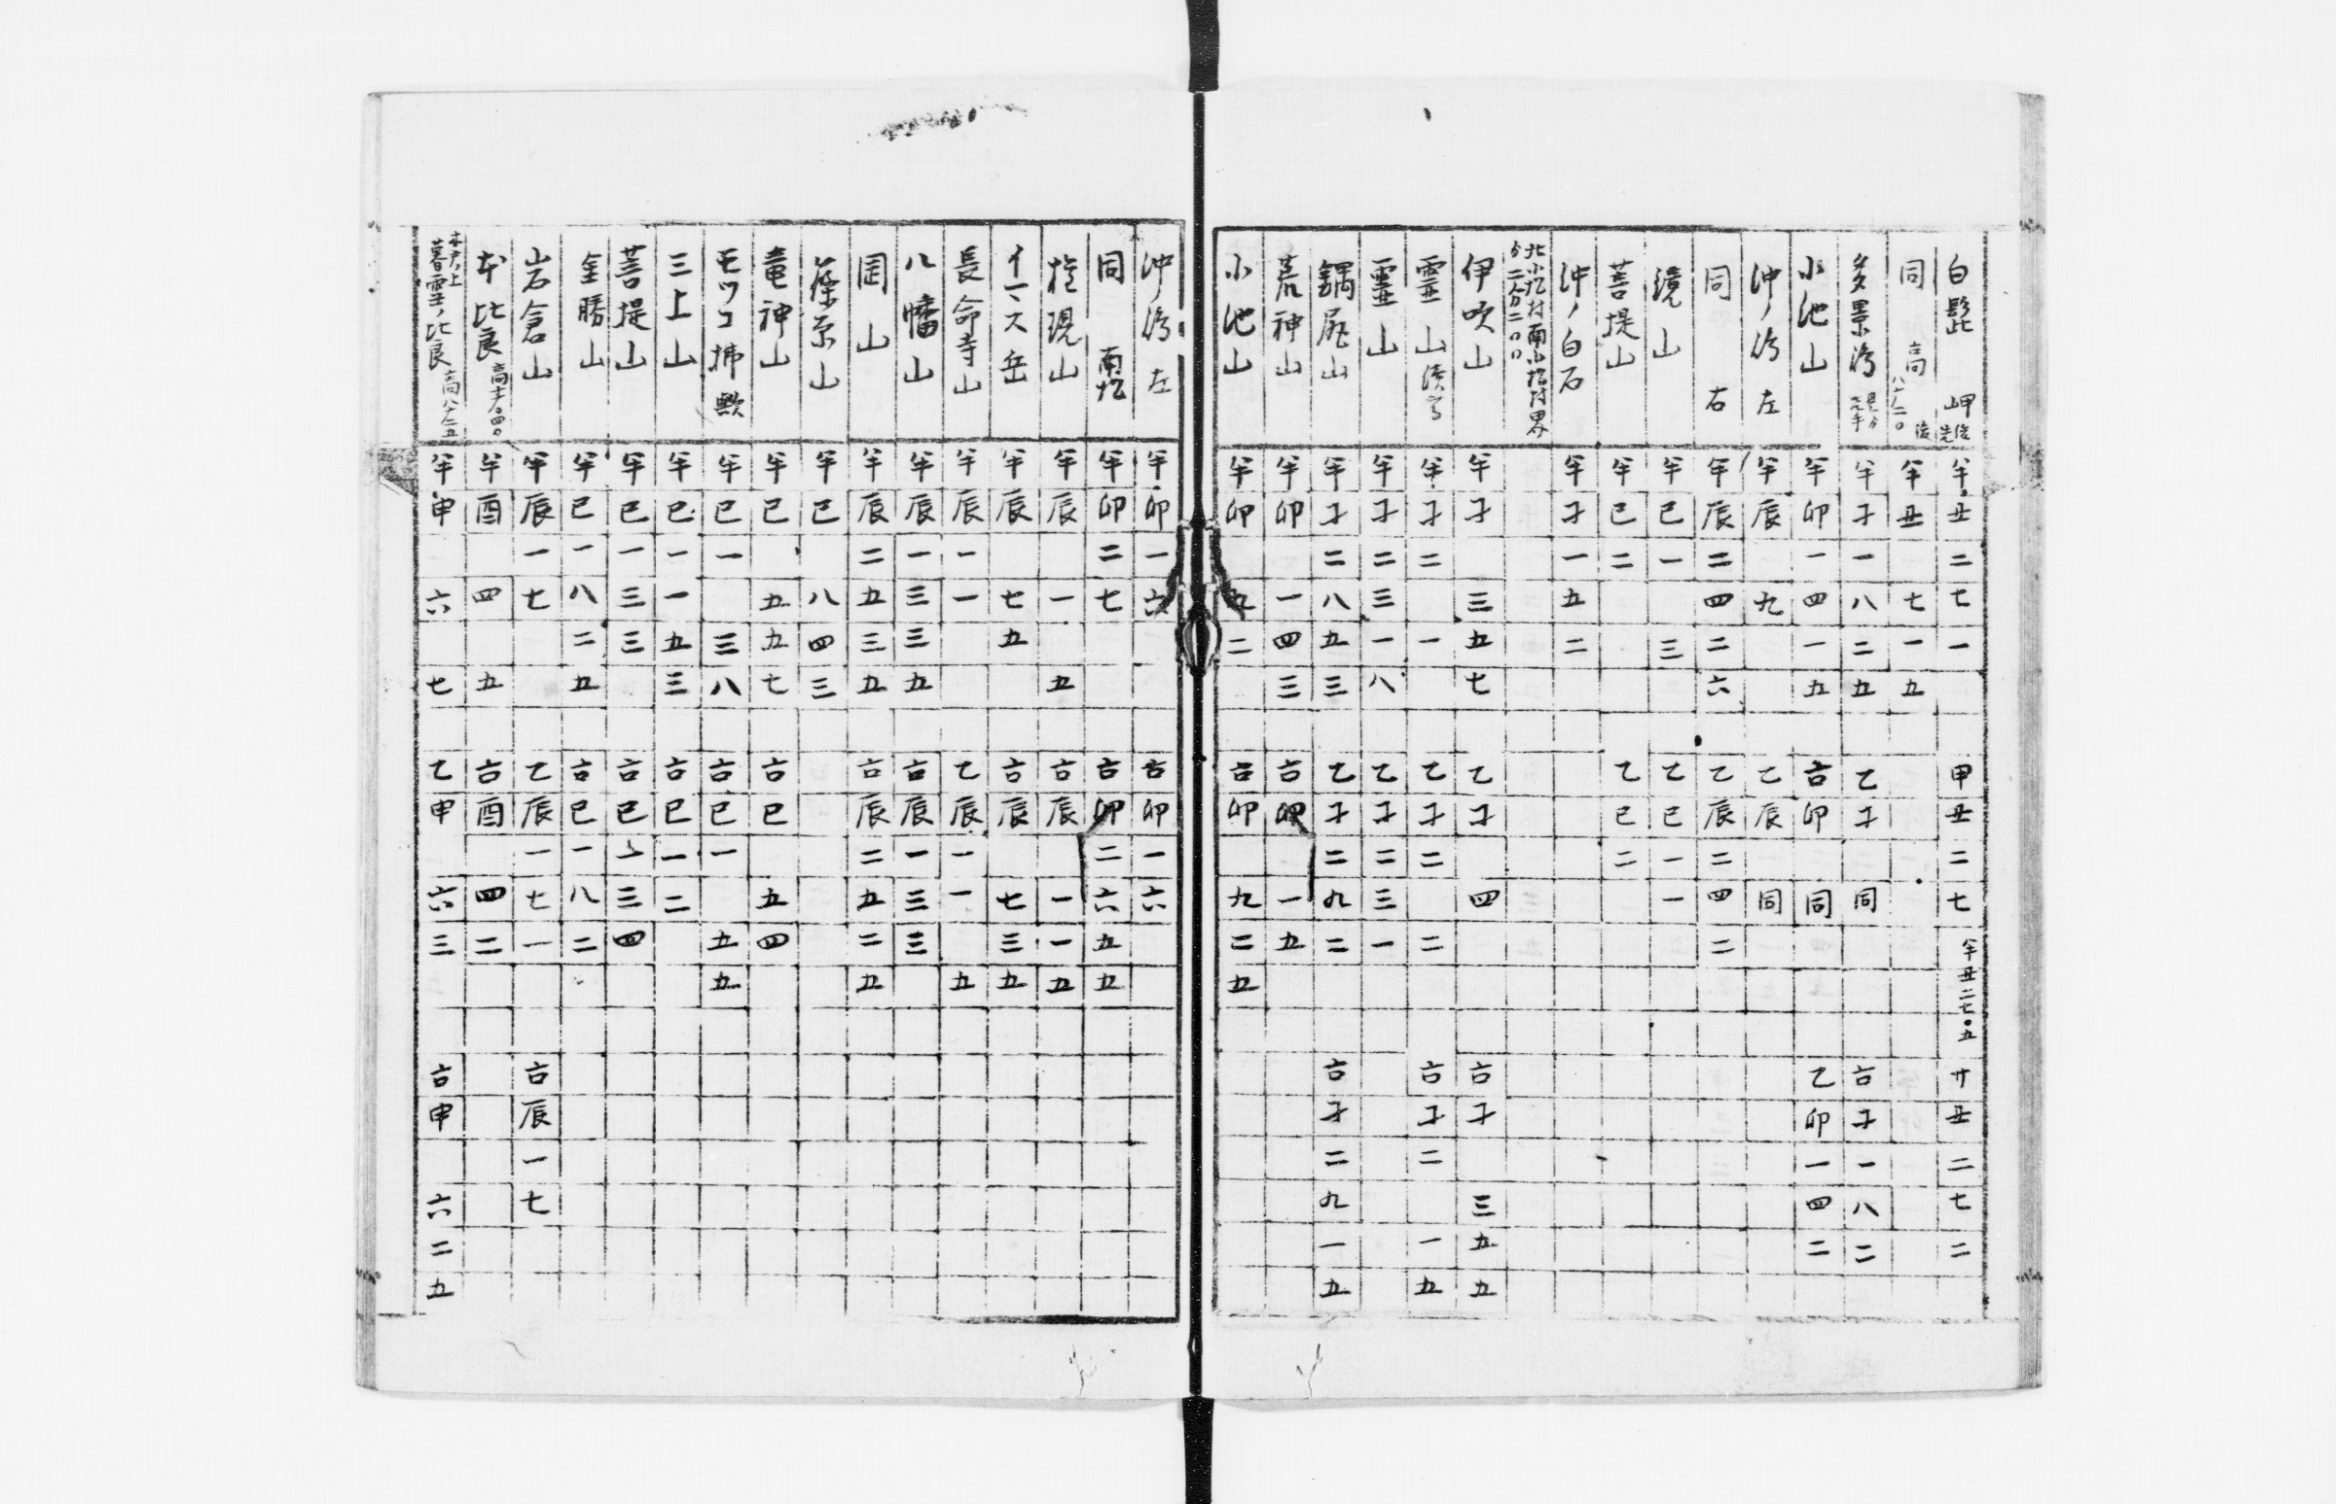 白髭 岬 山 後 先 半丑二七一 甲丑二七 半丑二七〇五 廿丑二七二
同 高 八十二〇 後 半丑 七一五
多景嶋 半子一八二五 乙子 同 古子一八二
小池山 半卯一四一五 古卯 同 乙卯一四二
沖ノ嶋 左 半辰 九 乙辰 同
同 右 半辰二四二六 乙辰二四二
鏡山 半巳一 三 乙巳一一
菩提山 半巳二 乙巳二
沖ノ白石 半子一五二
北小松村南小松村界
伊吹山 半子 三五七 乙子 四 古子 三五五
霊山 半子二 一 乙子二 二 古子二 一五
霊山 半子二三一八 乙子二三一
鍋尻山 半子二八五三 乙子二九二 古子二九一五
荒神山 半卯 一四三 古卯 一五
小池山 半卯 九二 古卯 九二五
沖ノ嶋 左 半卯一六 古卯一六
同 南 半卯二七 古卯二六五五
権現山 半辰 一 五 古辰 一一五
半辰 七五 古辰 七三五
長命寺山 半辰一一 乙辰一一 五
八幡山 半辰一三三五 古辰一三三
岡山 半辰二五三五 古辰二五二五
半巳 八四三
竜神山 半巳 五九七 古巳 五四
半巳一 三八 古巳一 五五
三上山 半巳一一五三 古巳一二
菩提山 半巳一三三 古巳一三四
金勝山 半巳一八二五 古巳一八二
岩倉山 半辰一七 乙辰一七一 古辰一七
本比良 半酉 四 五 古酉 四二
木戸上 暮雪ノ比良 半申 六 七 乙申 六三 古申 六二五